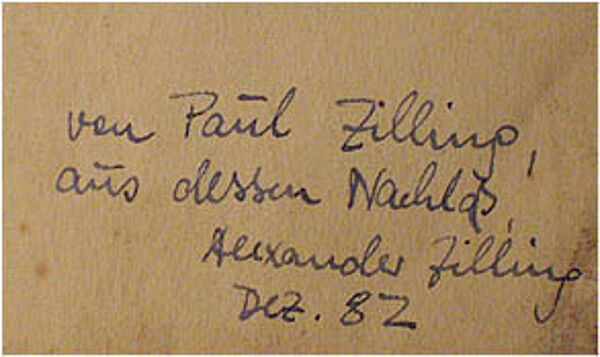 von Paul Zilling,
aus dessen Nachlaß,
Alexander Zilling
Dez. 82